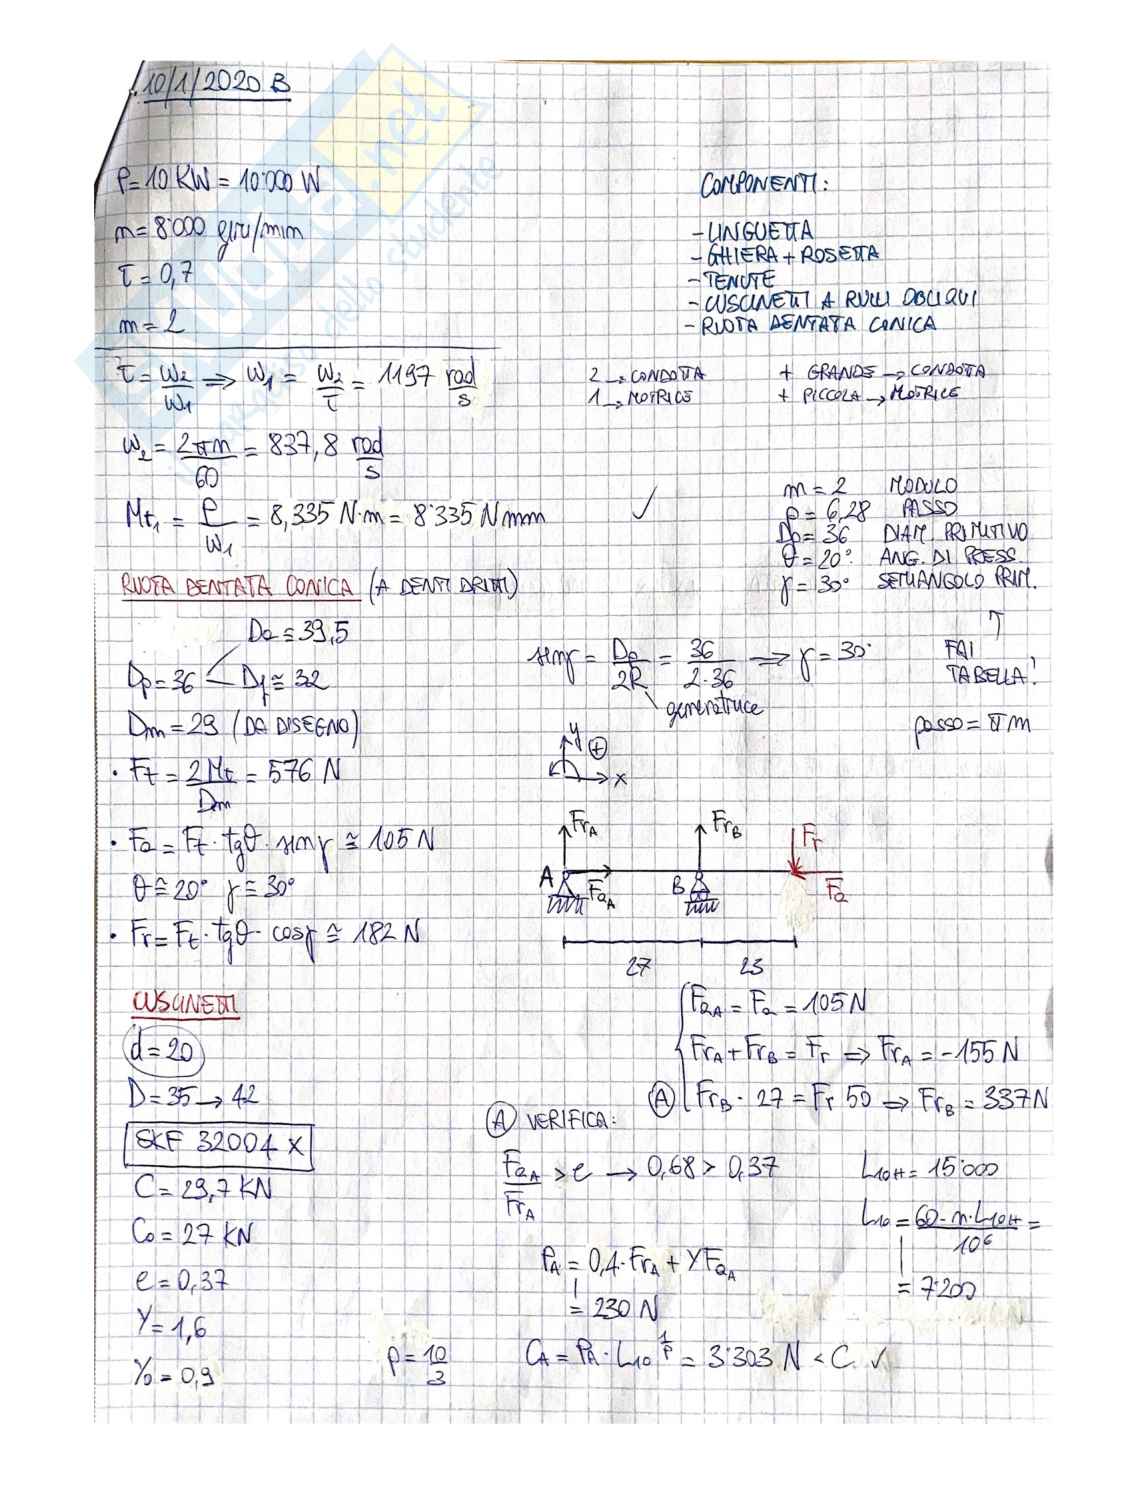 10/1/2020 B
P = 10 KW = 10'000 W
n = 8'000 giri/min
τ = 0,7
m = 2
COMPONENTI:
- LINGUETTA
- GHIERA + ROSETTA
- TENUTE
- CUSCINETTI A RULLI OBLIQUI
- RUOTA DENTATA CONICA
τ = ω2/ω1 ⟹ ω1 = ω2/τ = 1197 rad/s
2 → CONDOTTA
1 → MOTRICE
+ GRANDE → CONDOTTA
+ PICCOLA → MOTRICE
ω2 = 2πn/60 = 837,8 rad/s
Mt1 = P/ω1 = 8,335 N·m = 8'335 Nmm ✓
m = 2 MODULO
p = 6,28 PASSO
Dp = 36 DIAM. PRIMITIVO
θ = 20° ANG. DI PRESS.
γ = 30° SEMIANGOLO PRIM.
↑
FAI
TABELLA!
passo = πm
RUOTA DENTATA CONICA (A DENTI DRITTI)
Da ≅ 39,5
Dp = 36
Df ≅ 32
Dm = 29 (DA DISEGNO)
senγ = Dp/2R = 36/2·36 ⟹ γ = 30°
generatrice
• Ft = 2Mt/Dm = 576 N
• Fa = Ft · tgθ · senγ ≅ 105 N
θ ≅ 20° γ ≅ 30°
• Fr = Ft · tgθ · cosγ ≅ 182 N
y
+
x
FrA
FrB
Fr
A
FaA
B
Fa
27
23
CUSCINETTI
d = 20
D = 35 → 42
SKF 32004 X
C = 29,7 KN
C0 = 27 KN
e = 0,37
Y = 1,6
Y0 = 0,9
p = 10/3
FaA = Fa = 105 N
FrA + FrB = Fr ⟹ FrA = -155 N
A FrB · 27 = Fr 50 ⟹ FrB = 337 N
A VERIFICA:
FaA/FrA > e → 0,68 > 0,37
PA = 0,4 · FrA + YFaA
= 230 N
CA = PA · L10^(1/p) = 3'303 N < C ✓
L10H = 15'000
L10 = 60·n·L10H/10^6 =
= 7'200